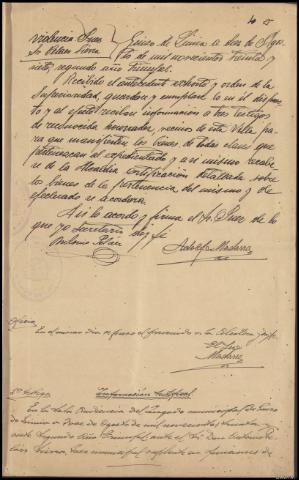 Providencia Juez
Sr. Peláez Sierra
de Limia a dos de Agos-
to de mil novecientos treinta y
siete, segundo año triunfal.
Recibido el antecedente exhorto y orden de la
Superioridad, guardese y cumplase lo en él dispues-
to y al efecto recibase información a tres testigos
de reconocida honoradez, vecinos de esta villa pa-
ra que manifiesten los bienes de todas clases que
pertenezcan al expedientado y asi mismo recabe-
se de la Alcaldía certificación detallada sobre
los bienes de la pertenencia del mismo y de
efectuado se acordara.
Asi lo acordo y firma el Sr. Juez de lo
que yo Secretario doy fe
Antonio Peláez
Adolfo
En el mismo dia se puso el prevenido a la Alcaldia doy fe
Información testifical
En la Sala Audiencia del Juzgado municipal de
de Limia a doce de Agosto de mil novecientos treinta y
siete Segundo Año Triunfal, ante el Sr. Don Antonio Pe-
laez Sierra, Juez municipal en funciones de